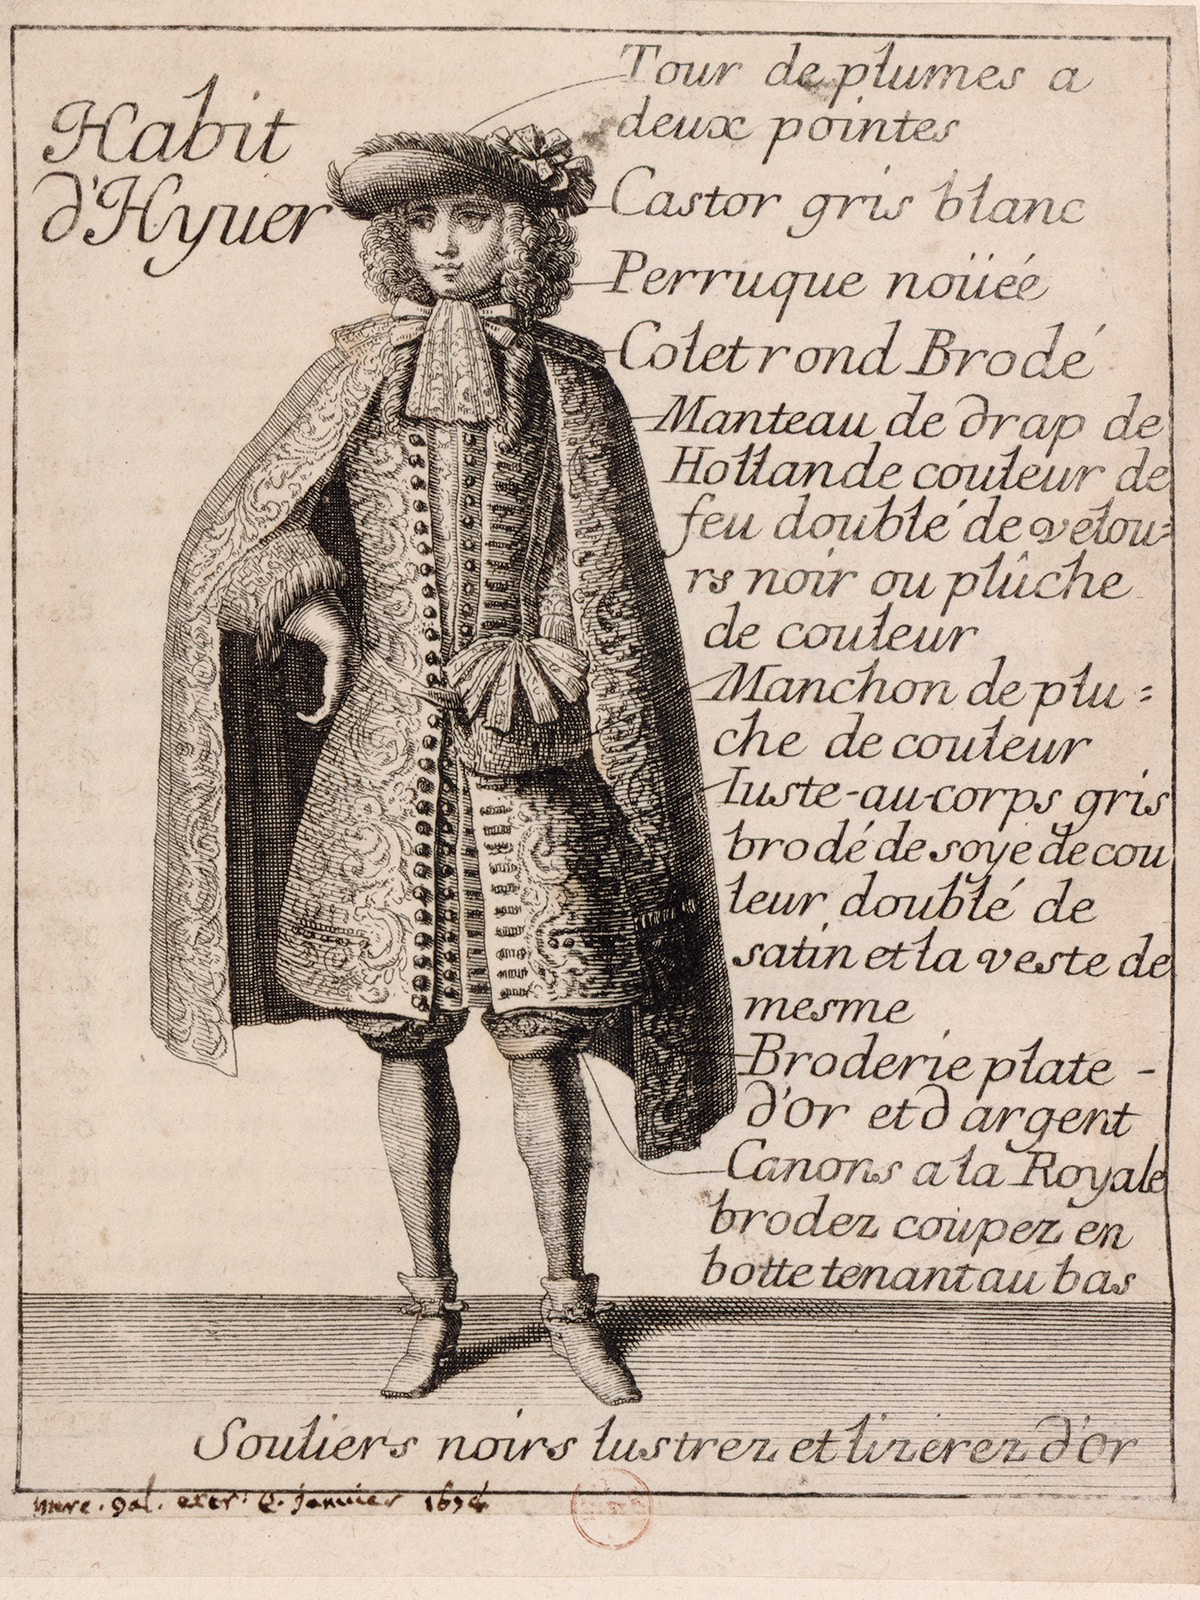 Habit
d'Hyuer
Tour de plumes a
deux pointes
Castor gris blanc
Perruque noüéé
Colet rond Brodé
Manteau de drap de
Hollande couleur de
feu doublé de velou=
rs noir ou plûche
de couleur
Manchon de plu=
che de couleur
Iuste-au-corps gris
brodé de soye de cou
leur doublé de
satin et la veste de
mesme
Broderie plate -
d'Or et d argent
Canons a la Royale
brodez coupez en
botte tenant au bas
Souliers noirs lustrez et lizerez d'or
Merc. gal. extr. janvier 1678